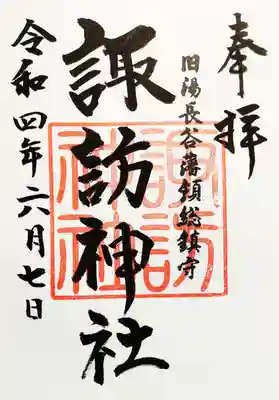 奉拝
旧湯長谷藩領総鎮守
諏訪神社
諏訪神社
令和四年六月七日